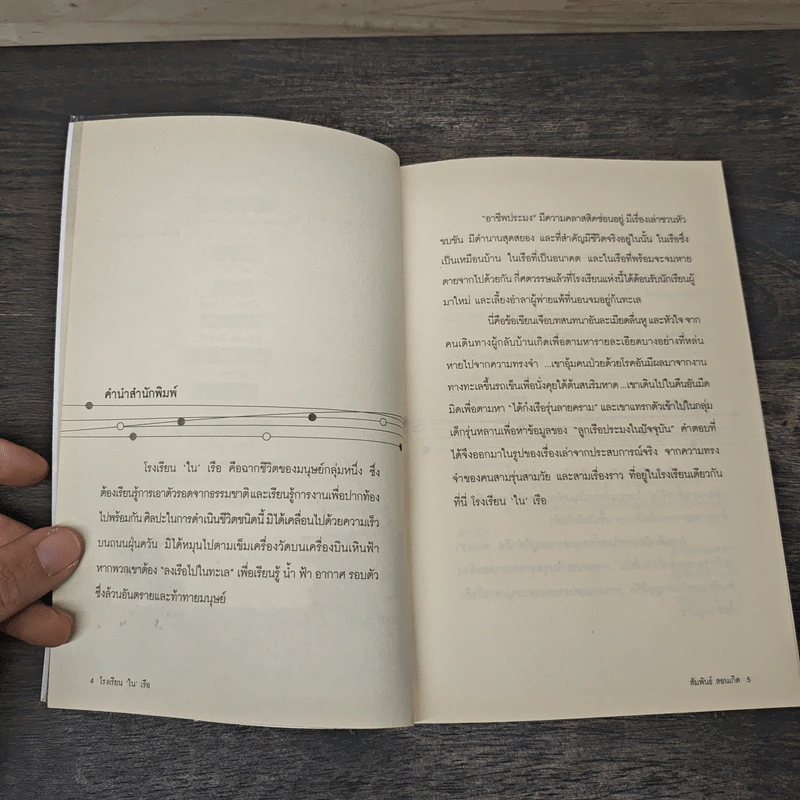 คำนำสำนักพิมพ์
โรงเรียน 'ใน' เรือ คือฉากชีวิตของมนุษย์กลุ่มหนึ่ง ซึ่ง
ต้องเรียนรู้การเอาตัวรอดจากธรรมชาติและเรียนรู้การงานเพื่อปากท้อง
ไปพร้อมกัน ศิลปะในการดำเนินชีวิตชนิดนี้ มิได้เคลื่อนไปด้วยความเร็ว
บนถนนฝุ่นควัน มิได้หมุนไปตามเข็มเครื่องวัดบนเครื่องบินเหินฟ้า
หากพวกเขาต้อง "ลงเรือไปในทะเล" เพื่อเรียนรู้ น้ำ ฟ้า อากาศ รอบตัว
ซึ่งล้วนอันตรายและท้าทายมนุษย์
4 โรงเรียน 'ใน' เรือ
"อาชีพประมง" มีความคลาสสิดซ่อนอยู่ มีเรื่องเล่าชวนหัว
ขบขัน มีตำนานสุดสยอง และที่สำคัญมีชีวิตจริงอยู่ในนั้น ในเรือซึ่ง
เป็นเหมือนบ้าน ในเรือที่เป็นอนาคต และในเรือที่พร้อมจะจมหาย
ตายจากไปด้วยกัน กี่ศตวรรษแล้วที่โรงเรียนแห่งนี้ได้ต้อนรับนักเรียนผู้
มาใหม่ และเลี้ยงอำลาผู้พ่ายแพ้ที่นอนจมอยู่ก้นทะเล
นี่คือข้อเขียนเจือบทสนทนาอันละเมียดลื่นหู และหัวใจ จาก
คนเดินทางผู้กลับบ้านเกิดเพื่อตามหารายละเอียดบางอย่างที่หล่น
หายไปจากความทรงจำ ...เขาอุ้มคนป่วยด้วยโรคอันมีผลมาจากงาน
ทางทะเลขึ้นรถเข็นเพื่อนั่งคุยใต้ต้นสนริมหาด ...เขาเดินไปในคืนอันมืด
มิดเพื่อตามหา "ไต้ก๋งเรือรุ่นลายคราม" และเขาแทรกตัวเข้าไปในกลุ่ม
เด็กรุ่นหลานเพื่อหาข้อมูลของ "ลูกเรือประมงในปัจจุบัน" คำตอบที่
ได้จึงออกมาในรูปของเรื่องเล่าจากประสบการณ์จริง จากความทรง
จำของคนสามรุ่นสามวัย และสามเรื่องราว ที่อยู่ในโรงเรียนเดียวกัน
ที่นี่ โรงเรียน 'ใน' เรือ
สัมพันธ์ สอนเกิด 5